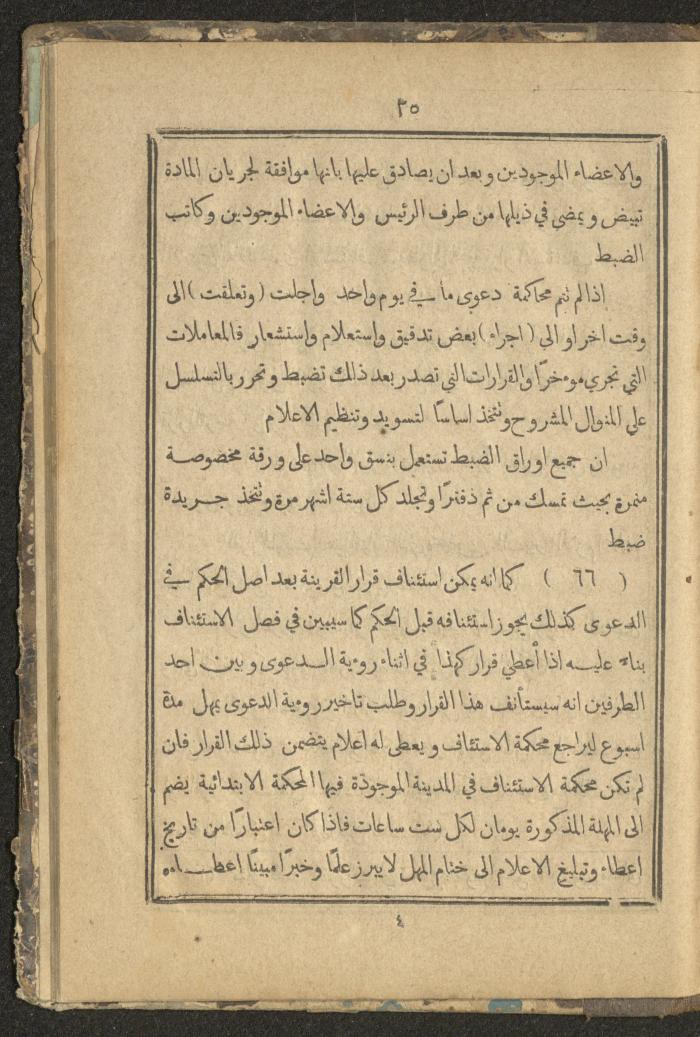 ٢٥
والاعضاء الموجودين وبعد ان يصادق عليها بانها موافقة لجريان المادة
تبيض ويمضي في ذيلها من طرف الرئيس والاعضاء الموجودين وكاتب
الضبط
اذا لم نتم محاكمة دعوى ما في يوم واحد واجلت (وتعلقت) الى
وقت اخر او الى (اجراء) بعض تدقيق واستعلام واستشعار فالمعاملات
التي تجري موءخرًا والقرارات التي تصدر بعد ذلك تضبط وتحرر بالتسلسل
على المنوال المشروح وتتخذ اساسًا لتسويد وتنظيم الاعلام
ان جميع اوراق الضبط تستعمل بنسق واحد على ورقة مخصوصة
منمرة بحيث تمسك من ثم دفترًا وتجلد كل ستة اشهر مرة وتتخذ جريدة
ضبط
( ٦٦ ) كما انه يمكن استئناف قرار القرينة بعد اصل الحكم في
الدعوى كذلك يجوز استئنافه قبل الحكم كما سيبين في فصل الاستئناف
بناء عليه اذا أعطي قرار كهذا في اثناء روءية الدعوى وبين احد
الطرفين انه سيستأنف هذا القرار وطلب تاخير روءية الدعوى يمهل مدة
اسبوع ليراجع محكمة الاستئناف ويعطى له اعلام يتضمن ذلك القرار فان
لم تكن محكمة الاستئناف في المدينة الموجودة فيها المحكمة الابتدائية يضم
الى المهلة المذكورة يومان لكل ست ساعات فاذا كان اعتبارًا من تاريخ
اعطاء وتبليغ الاعلام الى ختام المهل لا يبرز علمًا وخبرًا مبينًا اعطاءه
٤